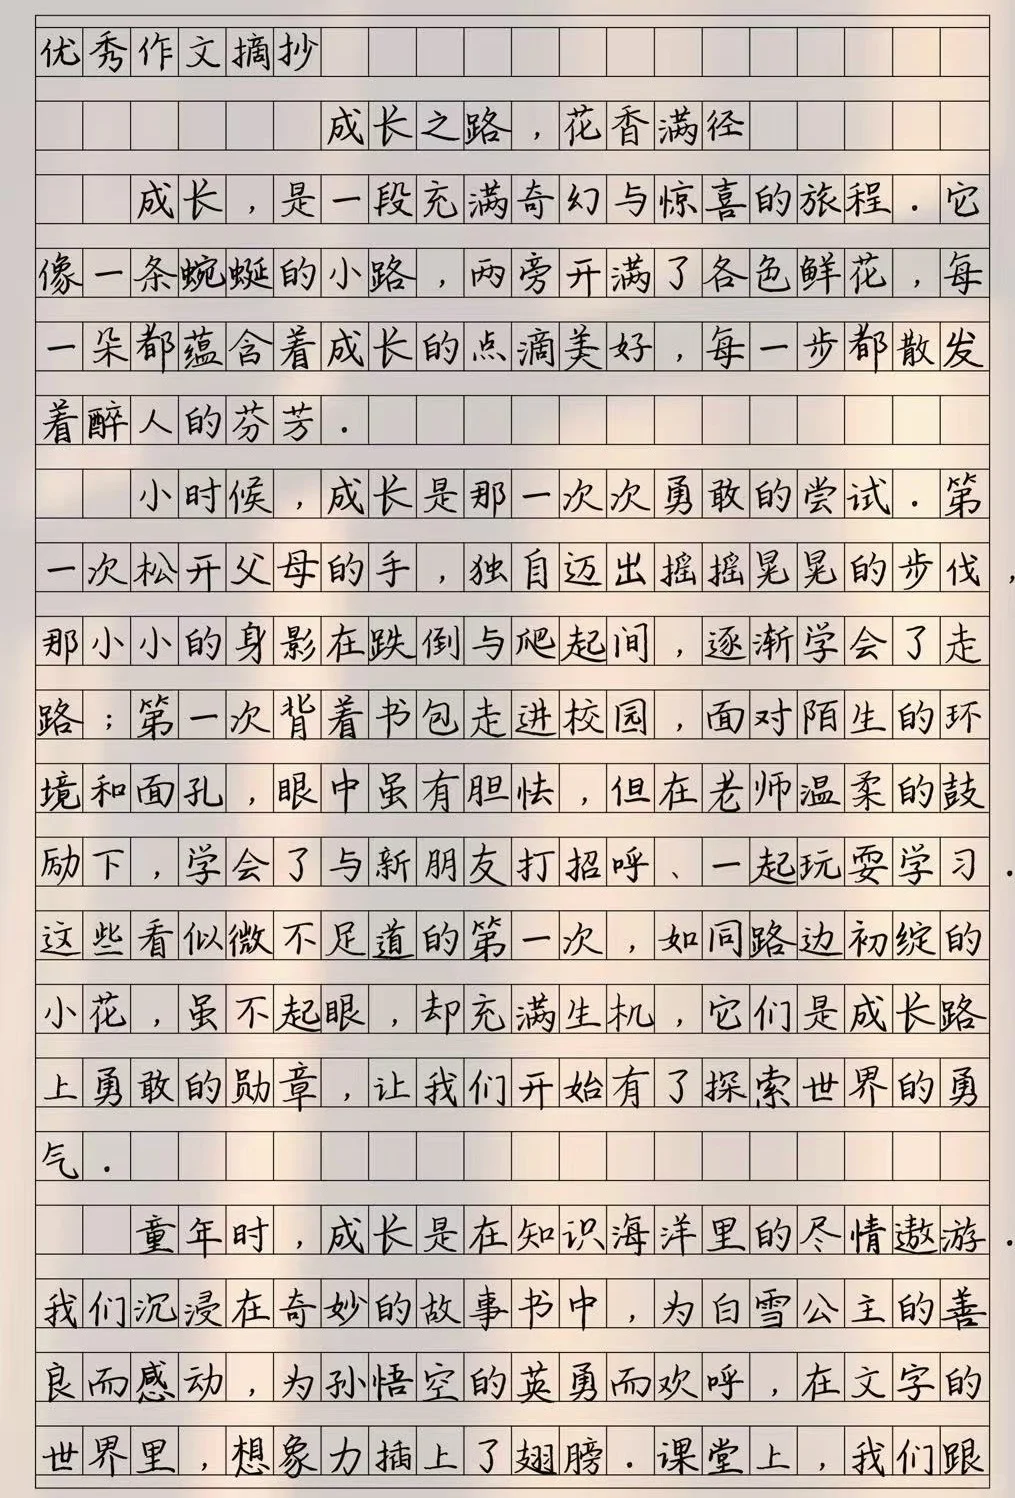 优秀作文摘抄
成长之路，花香满径
成长，是一段充满奇幻与惊喜的旅程．它
像一条蜿蜒的小路，两旁开满了各色鲜花，每
一朵都蕴含着成长的点滴美好，每一步都散发
着醉人的芬芳．
小时候，成长是那一次次勇敢的尝试．第
一次松开父母的手，独自迈出摇摇晃晃的步伐，
那小小的身影在跌倒与爬起间，逐渐学会了走
路；第一次背着书包走进校园，面对陌生的环
境和面孔，眼中虽有胆怯，但在老师温柔的鼓
励下，学会了与新朋友打招呼、一起玩耍学习．
这些看似微不足道的第一次，如同路边初绽的
小花，虽不起眼，却充满生机，它们是成长路
上勇敢的勋章，让我们开始有了探索世界的勇
气．
童年时，成长是在知识海洋里的尽情遨游．
我们沉浸在奇妙的故事书中，为白雪公主的善
良而感动，为孙悟空的英勇而欢呼，在文字的
世界里，想象力插上了翅膀．课堂上，我们跟